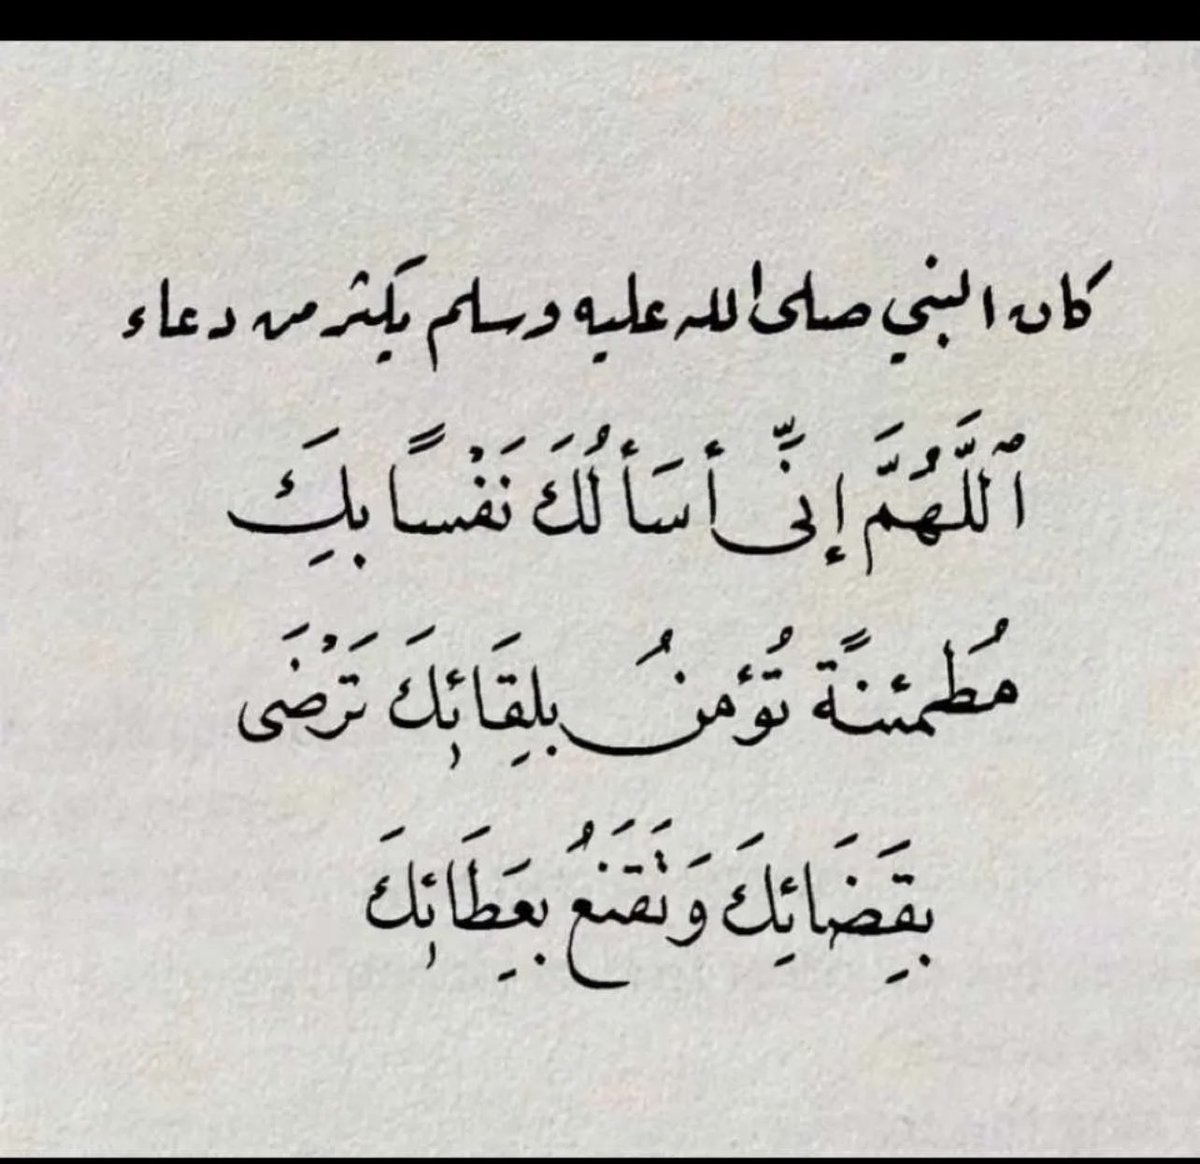 كان النبي صلى الله عليه وسلم يكثر من دعاء
ٱللَّهُمَّ إِنِّى أَسَأَلُكَ نَفْسًا بِكَ
مُطمئنةً تُؤمنُ بلِقَائِكَ تَرْضَى
بِقَضَائِكَ وَتَقنَعُ بِعَطَائِكَ